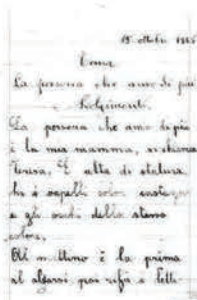 15 ottobre
Tema
La persona che amo di più
Svolgimento.
La persona che amo di più
è la mia mamma, si chiama
Teresa. È alta di statura
ha i capelli color castagno
e gli occhi dello stesso
colore.
Al mattino è la prima
al alzarsi poi rifà i letti